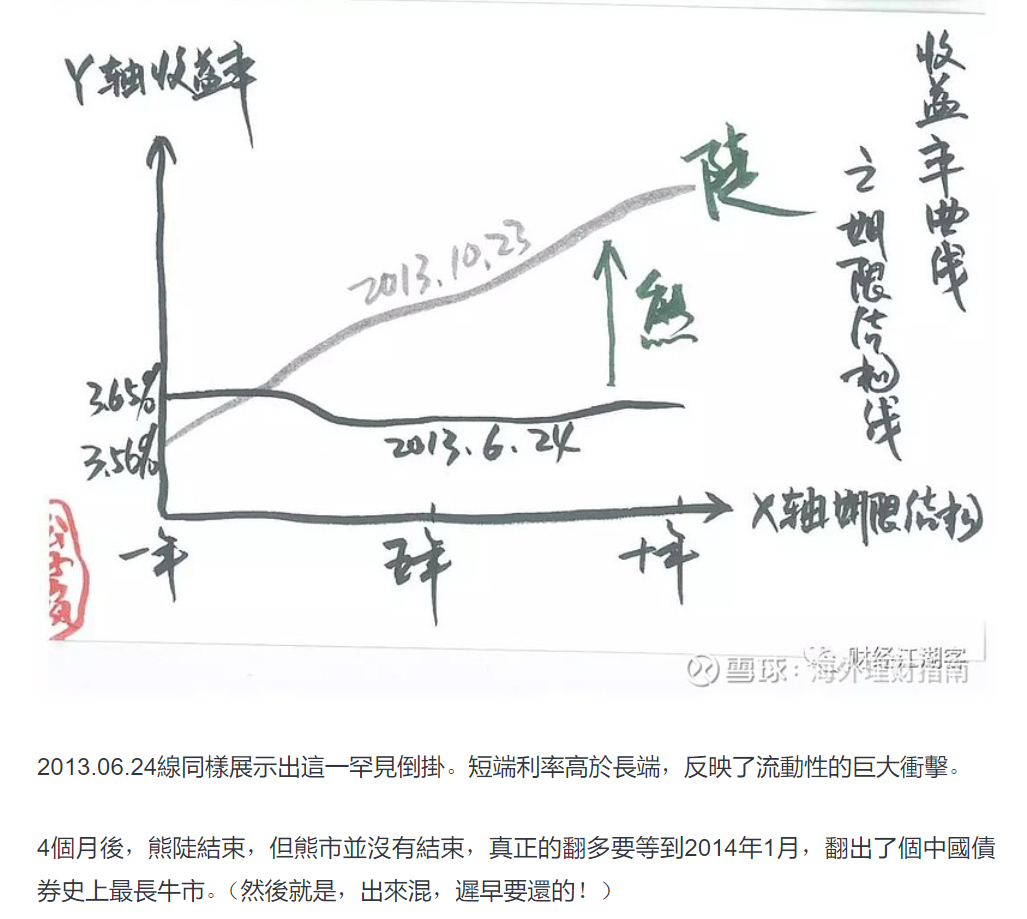 Y轴收益率
收益率曲线
之期限结构线
陡
2013.10.23
熊
3.65%
3.56%
2013.6.24
X轴期限结构
一年
五年
十年
财经江湖客
雪球：海外理财指南
2013.06.24線同樣展示出這一罕見倒掛。短端利率高於長端，反映了流動性的巨大衝擊。
4個月後，熊陡結束，但熊市並沒有結束，真正的翻多要等到2014年1月，翻出了個中國債
券史上最長牛市。（然後就是，出來混，遲早要還的！）